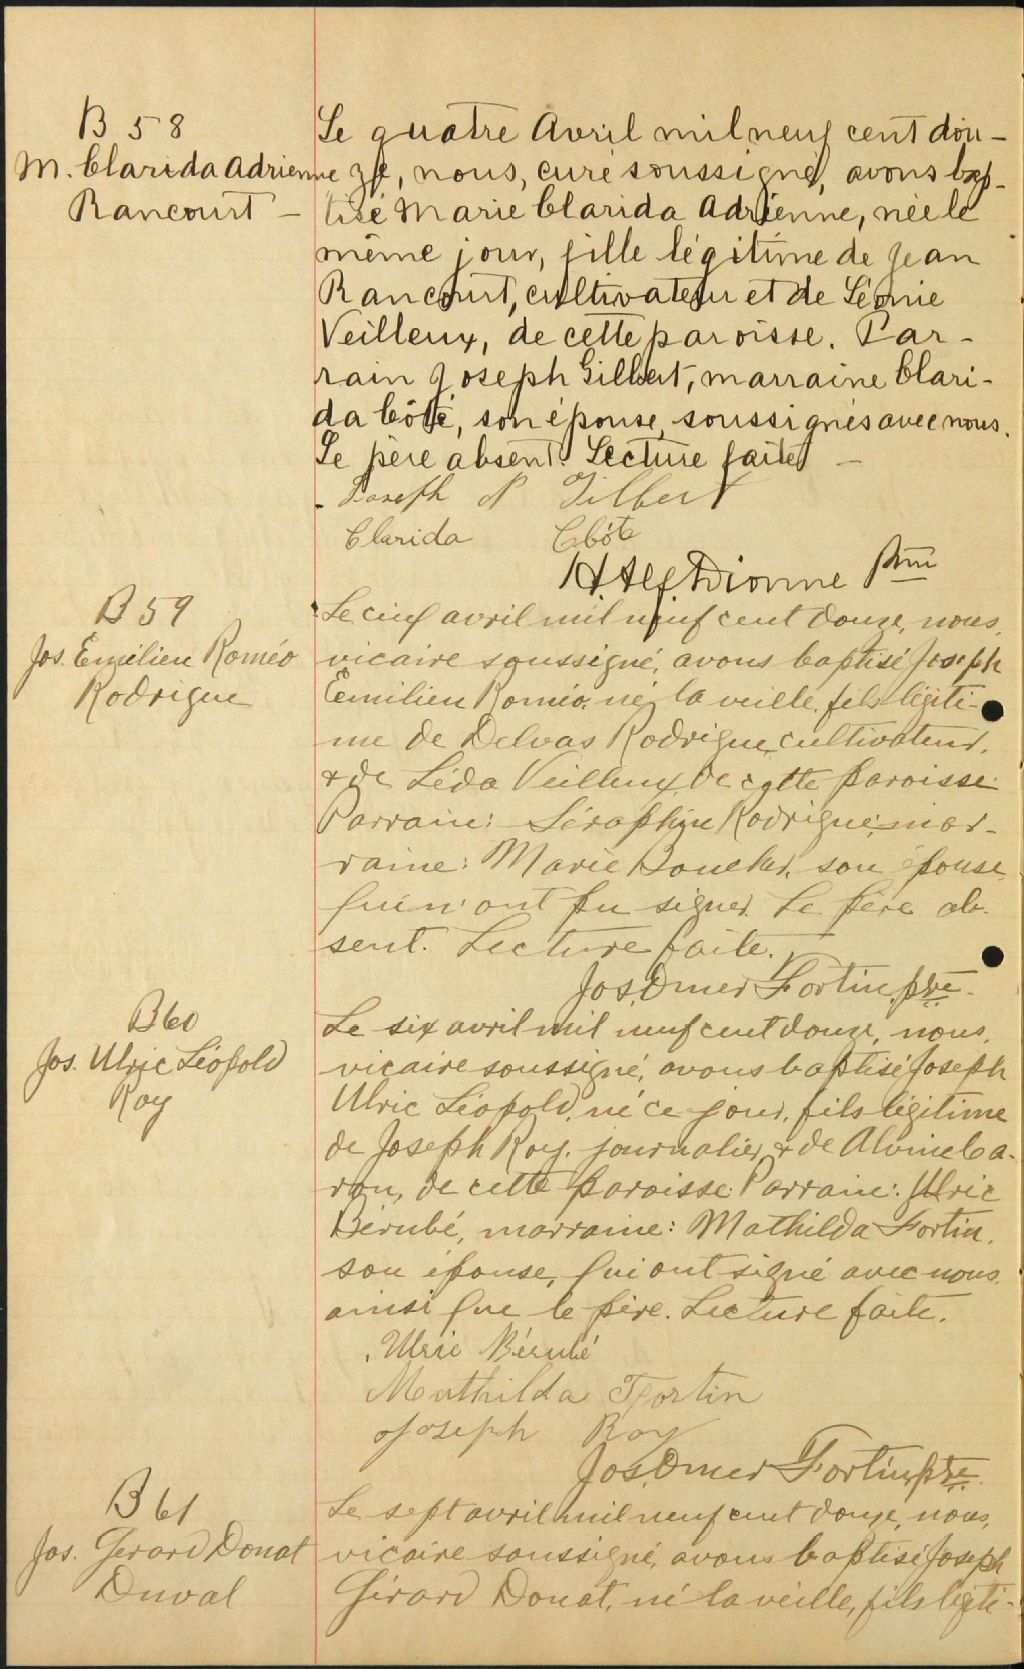 B 58
M. Clarida Adrienne
Rancourt –
Le quatre Avril mil neuf cent dou-
ze, nous, curé soussigné, avons bap-
tisé Marie Clarida Adrienne, née le
même jour, fille légitime de Jean
Rancourt, cultivateur et de Léonie
Veilleux, de cette paroisse. Par-
rain Joseph Gilbert, marraine Clari-
da Côté, son épouse, soussignés avec nous.
Le père absent. Lecture faite –
Joseph N Gilbert
Clarida Côté
H. Alf. Dionne Ptre
B 59
Jos. Emilien Roméo
Rodrigue
Le cinq avril mil neuf cent douze, nous,
vicaire soussigné, avons baptisé Joseph
Emilien Roméo, né la veille, fils légiti-
me de Delvas Rodrigue, cultivateur,
& de Léda Veilleux, de cette paroisse.
Parrain: Séraphin Rodrigue, mar-
raine: Marie Boucher, son épouse
qui n'ont pu signer. Le père ab-
sent. Lecture faite.
Jos. Omer Fortin, ptre.
B 60
Jos. Ulric Léopold
Roy
Le six avril mil neuf cent douze, nous,
vicaire soussigné, avons baptisé Joseph
Ulric Léopold, né ce jour, fils légitime
de Joseph Roy, journalier, & de Alvine Ca-
ron, de cette paroisse. Parrain: Ulric
Bérubé, marraine: Mathilda Fortin,
son épouse, qui ont signé avec nous
ainsi que le père. Lecture faite.
Ulric Bérubé
Mathilda Fortin
Joseph Roy
Jos. Omer Fortin, ptre.
B 61
Jos. Gérard Donat
Duval
Le sept avril mil neuf cent douze, nous,
vicaire soussigné, avons baptisé Joseph
Gérard Donat, né la veille, fils légiti-